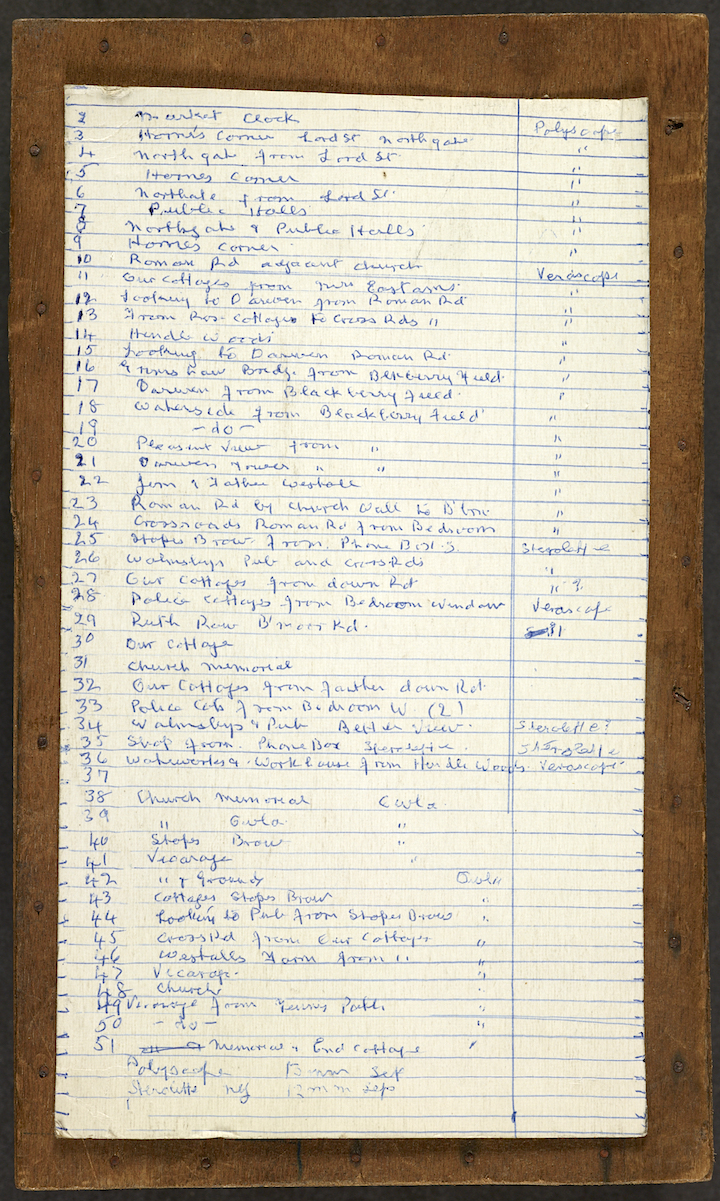 2 Market Clock
3 Hornes Corner Lord St Northgate Polyscope
4 Northgate from Lord St "
5 Hornes Corner "
6 Northate from Lord St. "
7 Public Halls "
8 Northgate & Public Halls "
9 Hornes Corner "
10 Roman Rd adjacent church
11 Our Cottages from Eastarns Verascope
12 Looking to Darwen from Roman Rd "
13 From Cottages to Cross Rds " "
14 Hendle Woods "
15 Looking to Darwen Roman Rd "
16 Bridge from Field "
17 Darwen from Blackberry Field. "
18 Waterside from Blackberry Field "
19 - do - "
20 Pleasant View from " "
21 Darwen Tower " " "
22 & Father Westall "
23 Roman Rd by Church Wall to B'burn "
24 Crossroads Roman Rd from Bedroom "
25 Stopes Brow from. Phone Box Sterolette
26 Walmsleys Pub and Cross Rds "
27 Our Cottages from down Rd " ?
28 Police Cottages from Bedroom Window Verascope
29 Row B'moor Rd.
30 Our Cottage
31 Church Memorial
32 Our Cottages from farther down Rd
33 Police Cots from Bedroom W. (2)
34 Walmsleys & Pub Better View. Sterolette?
35 Shop from. Phone Box
36 & Workhouse from Hendle Woods. Verascope
37
38 Church Memorial
39 " "
40 Stopes Brow "
41 Vicarage "
42 " & Grounds
43 Cottages Stopes Brow "
44 Looking to Pub from Stopes Brow "
45 Cross Rd from Our Cottages "
46 Westalls Farm from " "
47 Vicarage. "
48 Church "
49 Vicarage from Path. "
50 - do - "
51 Memorial & End Cottage "
Polyscope mm Sep
neg 12 mm seps